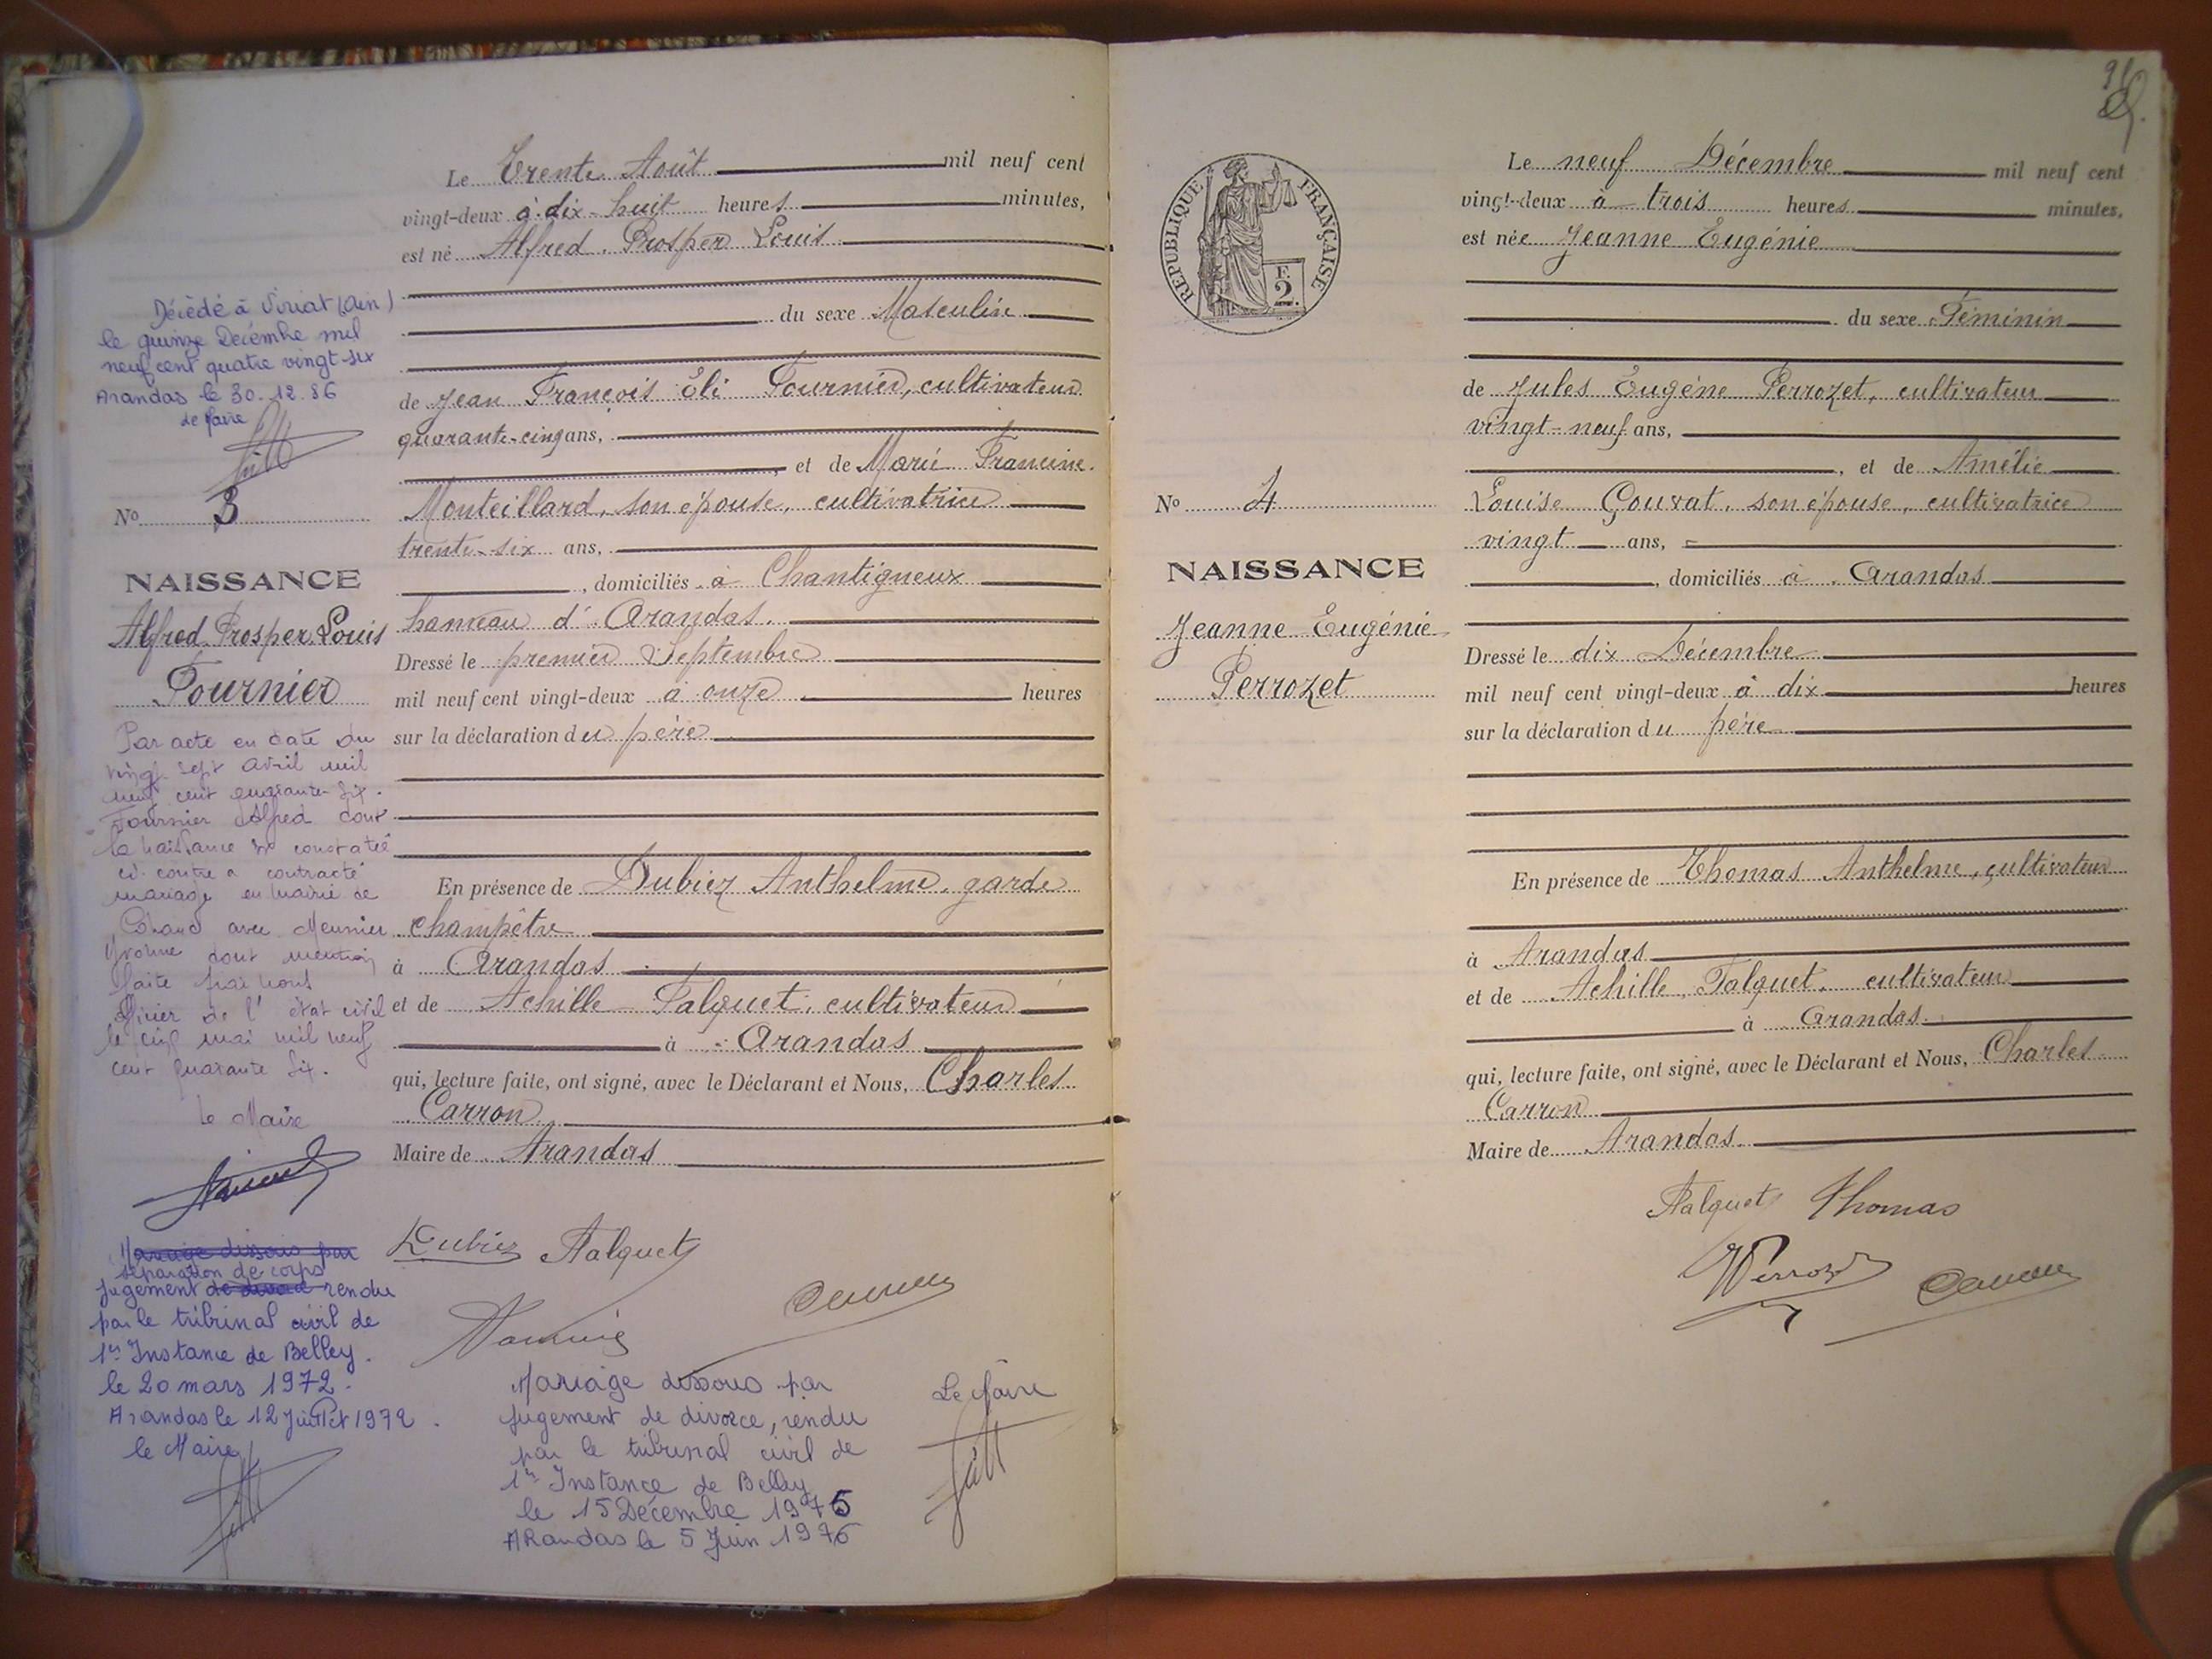 Le Trente Août mil neuf cent
vingt-deux à dix-huit heures minutes,
est né Alfred Prosper Louis
du sexe Masculin
de Jean François Eli Fournier, cultivateur
quarante-cinq ans,
et de Marie Francine
Monteillard, son épouse, cultivatrice
trente-six ans,
domiciliés à Chantigneux
hameau d'Arandas.
Dressé le premier Septembre
mil neuf cent vingt-deux à onze heures
sur la déclaration du père
En présence de Dubiez Anthelme, garde
champêtre
à Arandas
et de Achille Falquet, cultivateur
à Arandas
qui, lecture faite, ont signé, avec le Déclarant et Nous, Charles
Carron
Maire de Arandas
Dubiez Falquet
Mariage dissous par
jugement de divorce, rendu
par le tribunal civil de
1re Instance de Belley
le 15 Décembre 1975
ARandas le 5 Juin 1976
Le Maire
Décédé à Viriat (Ain)
le quinze Décembre mil
neuf cent quatre vingt-six
Arandas le 30.12.86
le Maire
No 3
NAISSANCE
Alfred Prosper Louis
Fournier
Par acte en date du
vingt sept avril mil
neuf cent quarante-six.
Fournier Alfred dont
la naissance est constatée
ci-contre a contracté
mariage en mairie de
avec Meunier
Yvonne dont mention
faite par nous
officier de l'état civil
le cinq mai mil neuf
cent quarante six.
le Maire
Mariage dissous par
séparation de corps
jugement de divorce rendu
par le tribunal civil de
1re Instance de Belley.
le 20 mars 1972.
Arandas le 12 Juillet 1972.
le Maire
RÉPUBLIQUE FRANÇAISE
F.
2
No 4
NAISSANCE
Jeanne Eugénie
Perrozet
Le neuf Décembre mil neuf cent
vingt-deux à trois heures minutes,
est née Jeanne Eugénie
du sexe Féminin
de Jules Eugène Perrozet, cultivateur
vingt-neuf ans,
, et de Amélie
Louise Gouvat, son épouse, cultivatrice
vingt ans,
, domiciliés à Arandas
Dressé le dix Décembre
mil neuf cent vingt-deux à dix heures
sur la déclaration du père
En présence de Thomas Anthelme, cultivateur
à Arandas
et de Achille Falquet, cultivateur
à Arandas
qui, lecture faite, ont signé, avec le Déclarant et Nous, Charles
Carron
Maire de Arandas
Falquet Thomas
Perrozet